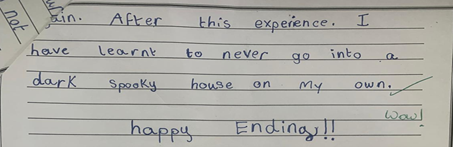 not
ain. After this experience. I
have learnt to never go into a
dark spooky house on my own.
Wow!
happy Ending!!